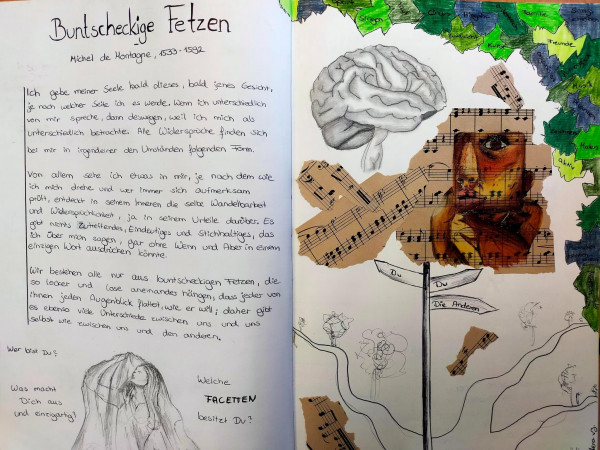 Buntscheckige Fetzen
Michel de Montagne, 1533-1592
Ich gebe meiner Seele bald dieses, bald jenes Gesicht,
je nach welcher Seite ich es werde. Wenn ich unterschiedlich
von mir spreche, dann deswegen, weil ich mich als
unterschiedlich betrachte. Alle Widersprüche finden sich
bei mir in irgendeiner den Umständen folgenden Form.
Von allem sehe ich etwas in mir, je nach dem wie
ich mich drehe und wer immer sich aufmerksam
prüft, entdeckt in seinem Inneren die selbe Wandelbarkeit
und Widersprüchlichkeit, ja in seinem Urteile darüber. Es
gibt nichts Zutreffendes, Eindeutiges und Stichhaltiges, das
ich über mich sagen, gar ohne Wenn und Aber in einem
einzigen Wort ausdrücken könnte.
Wir bestehen alle nur aus buntscheckigen Fetzen, die
so locker und lose aneinander hängen, dass jeder von
ihnen jeden Augenblick flattert, wie er will; daher gibt
es ebenso viele Unterschiede zwischen uns und uns
selbst wie zwischen uns und den anderen.
Wer bist Du?
Was macht
Dich aus
und einzigartig?
Welche
FACETTEN
besitzt Du?
Familie
Freunde
Kunst
Musik
aktiv
Du
Du
Die Anderen